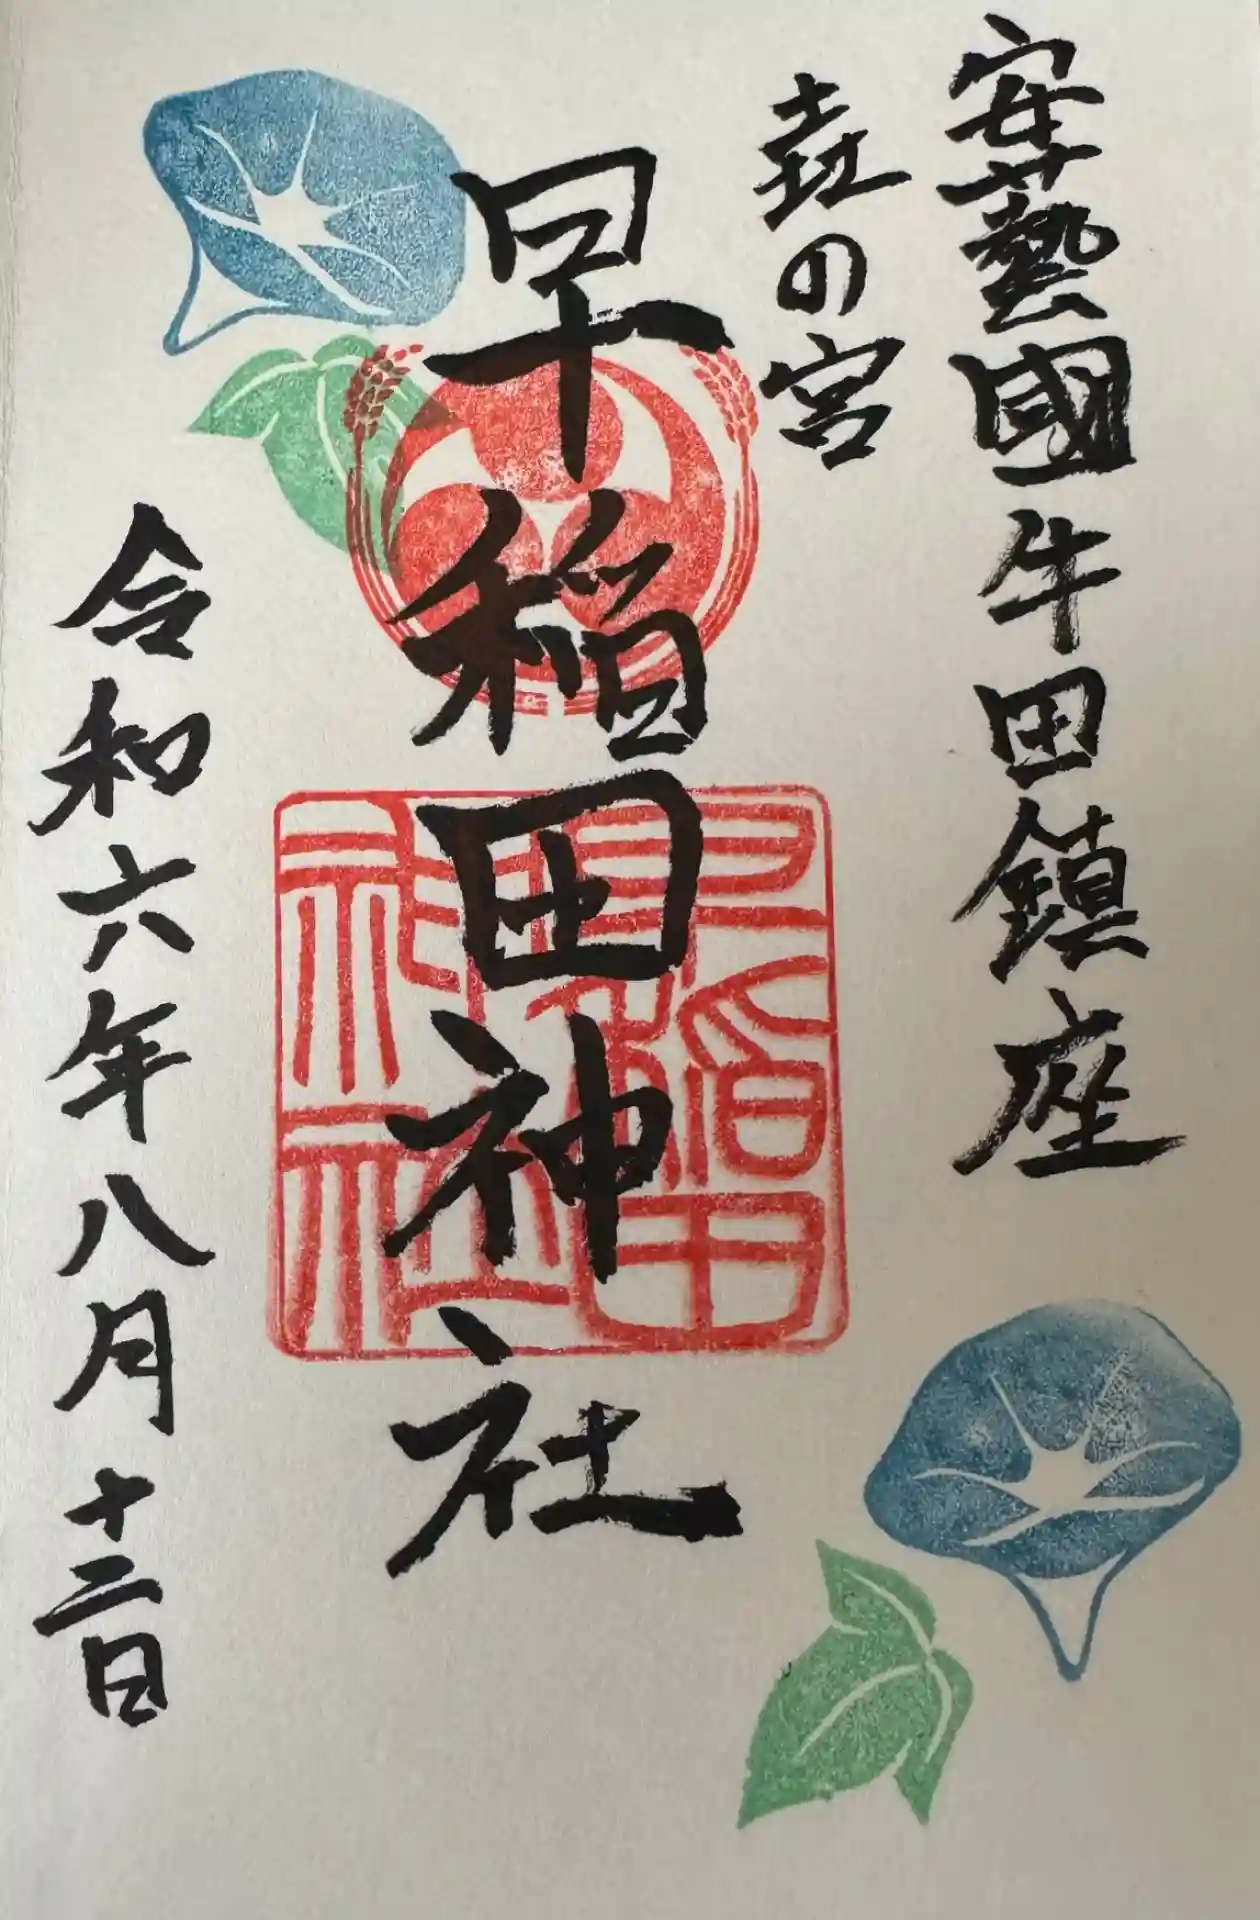 安藝國牛田鎮座
垚の宮
早稲田神社
令和六年八月十三日
早稲田
神社